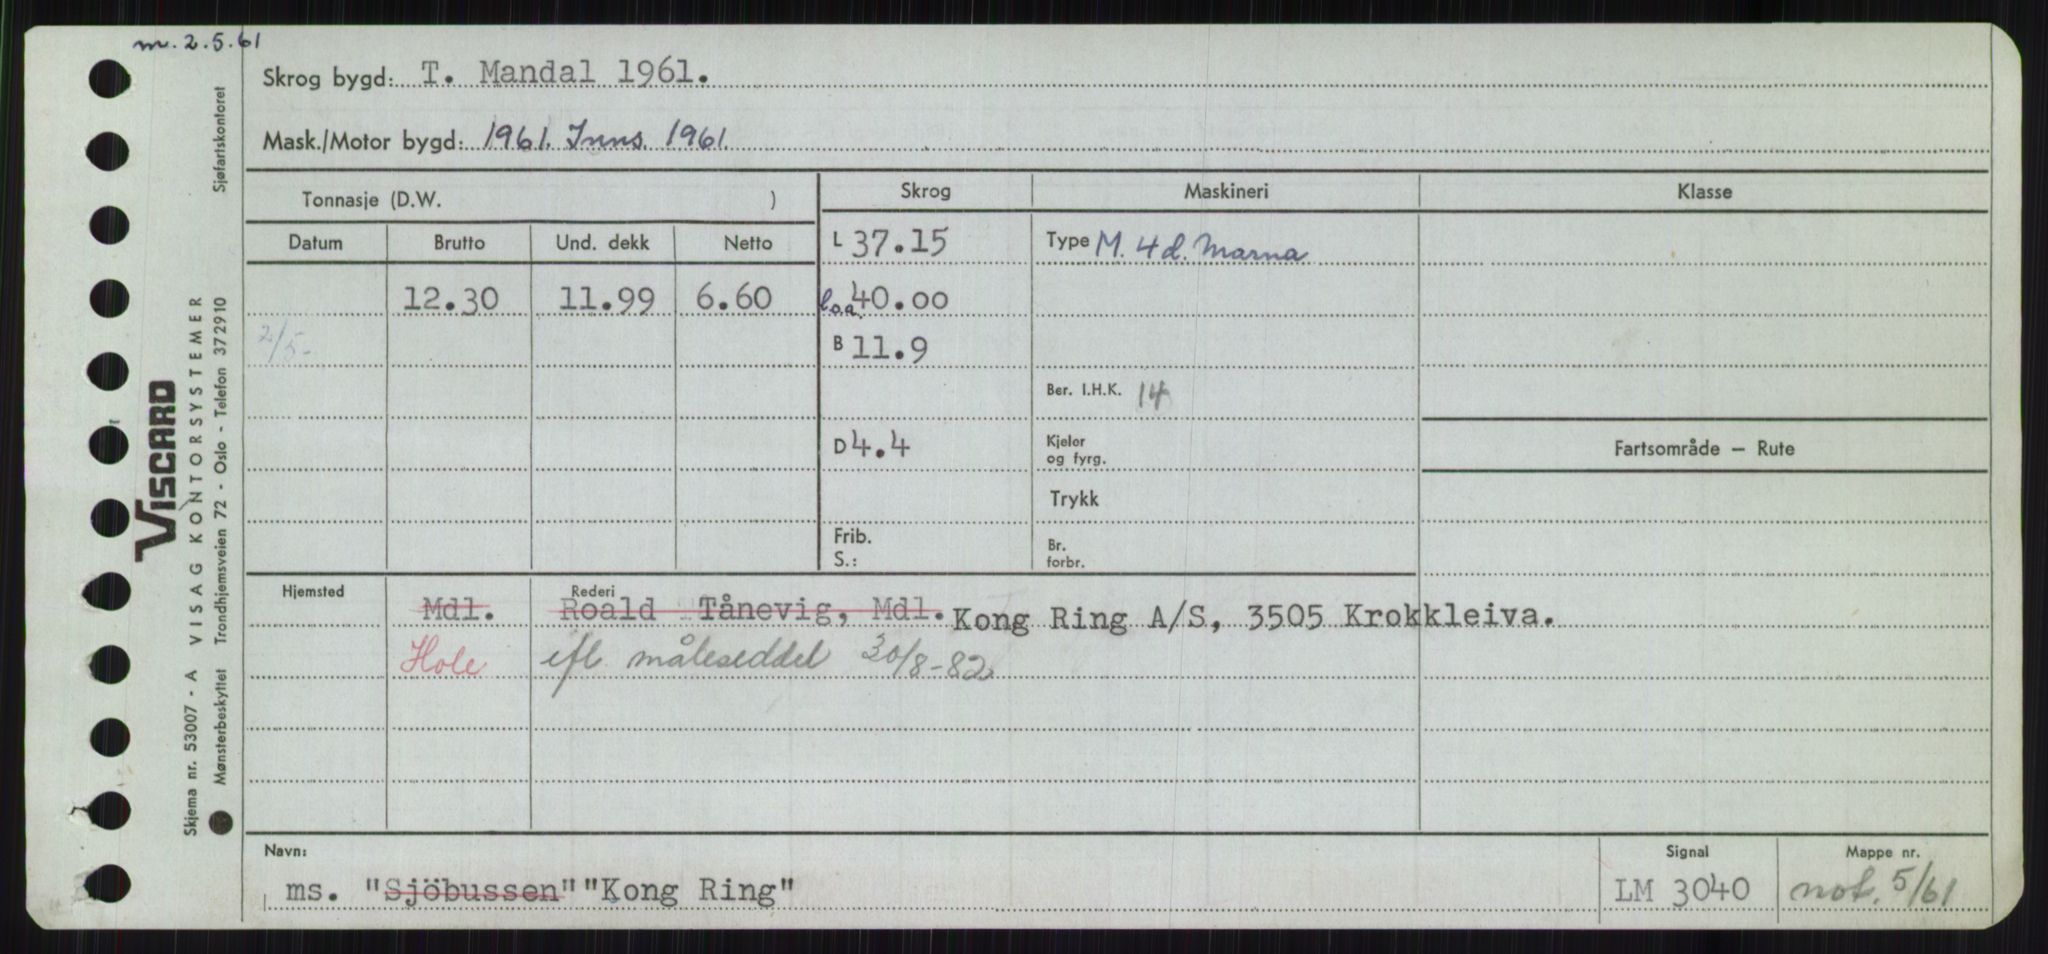 m. 2.5.61
Skrog bygd: T. Mandal 1961.
Mask./Motor bygd: 1961. Inns. 1961
Tonnasje (D.W. )
Skrog Maskineri Klasse
Datum Brutto Und. dekk Netto
L 37.15 Type M. 4 d. Marna
12.30 11.99 6.60 l.o.a. 40.00
2/5-
B 11.9
Ber. I.H.K. 14
D 4.4 Kjeler og fyrg.
Fartsområde – Rute
Trykk
Frib.
S.:
Br. forbr.
Hjemsted Rederi
Mdl. Roald Tånevig, Mdl. Kong Ring A/S, 3505 Krokkleiva.
Hole ifl. måleseddel 30/8-82
Navn: Signal Mappe nr.
ms. "Sjöbussen" "Kong Ring" LM 3040 not. 5/61
VISCARD
Skjema nr. 53007 - A VISAG KONTORSYSTEMER
Mønsterbeskyttet Trondhjemsveien 72 - Oslo - Telefon 372910 Sjøfartskontoret